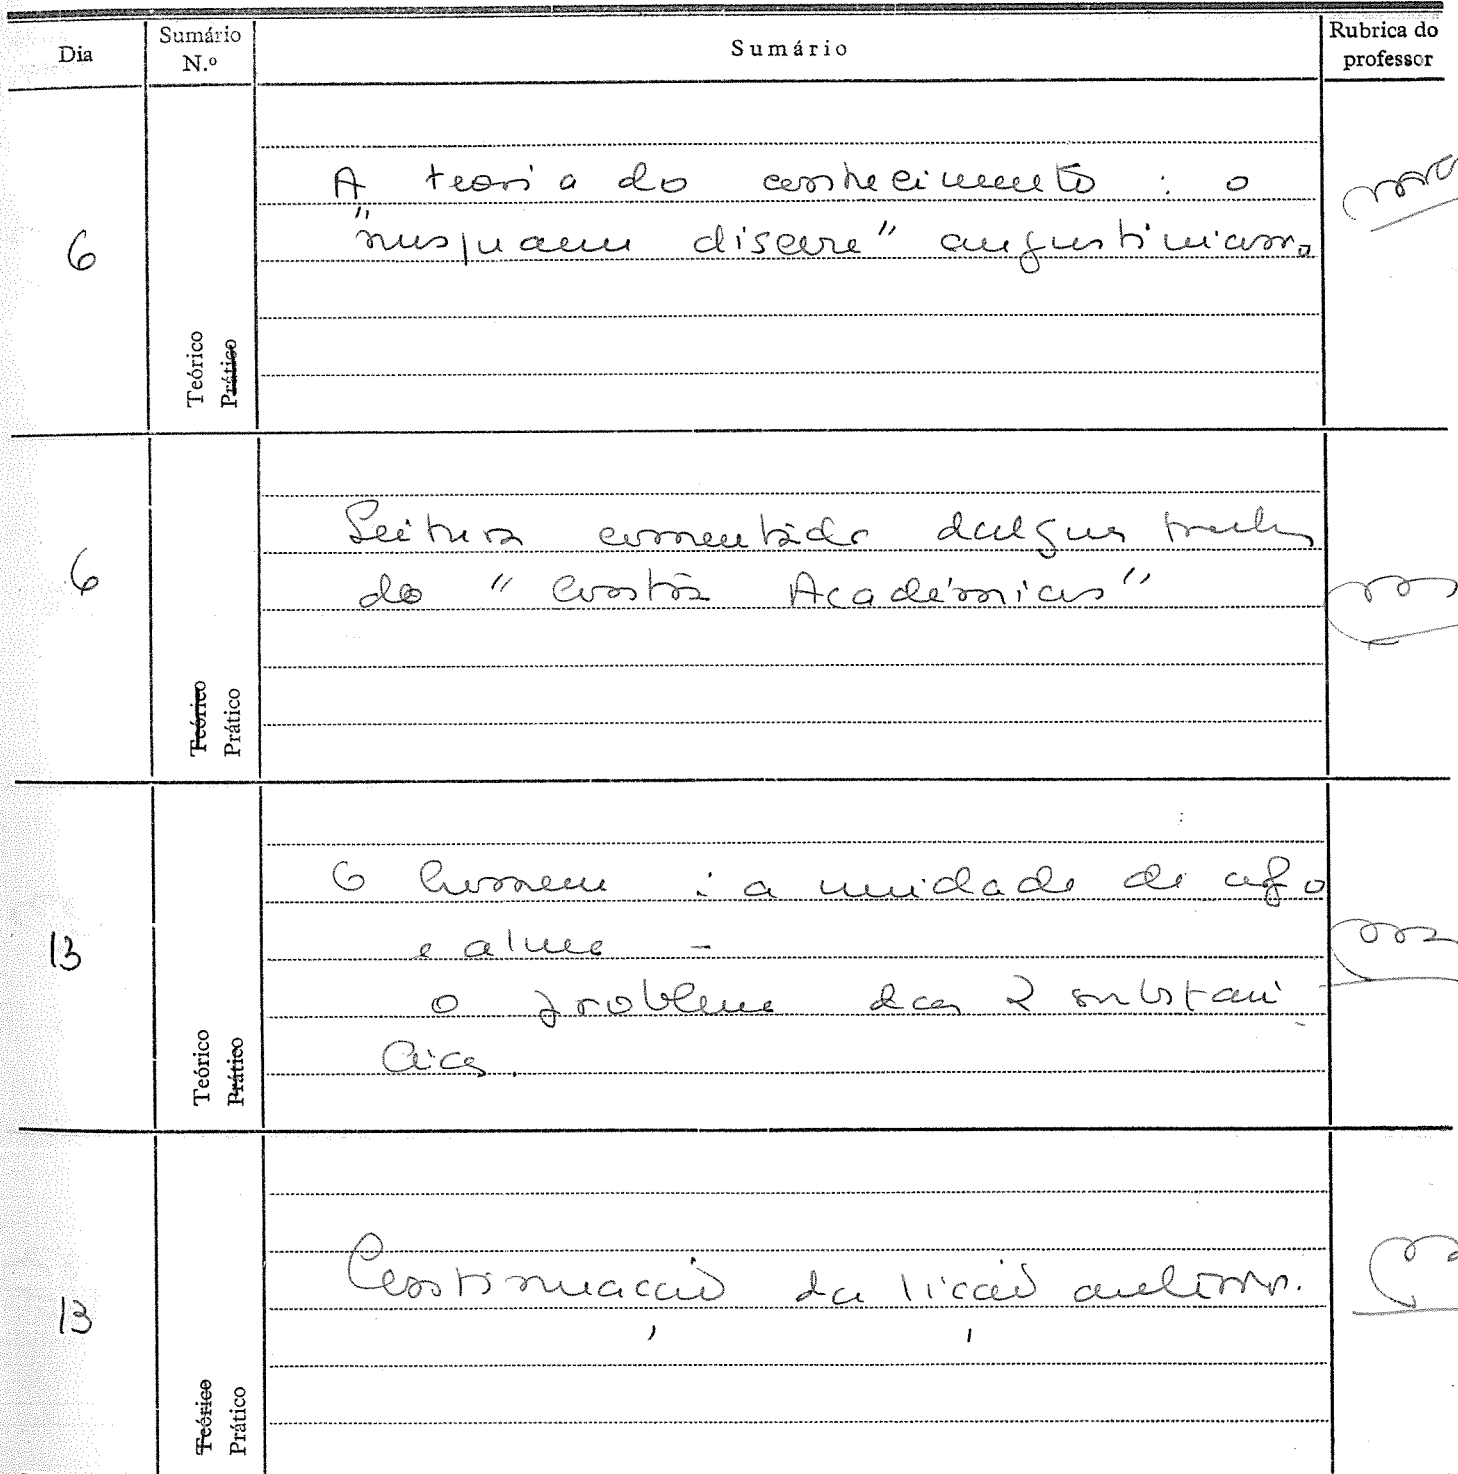 Dia
Sumário N.º
Sumário
Rubrica do professor
6
Teórico
Prático
A teoria do conhecimento : o
"nusquam discere" augustiniano
6
Teórico
Prático
Leitura comentada dalguns trechos
do "Contra Académicos"
13
Teórico
Prático
O homem : a unidade de
e alma –
o problema das 2 substân
cias.
13
Teórico
Prático
Continuação da lição anterior.